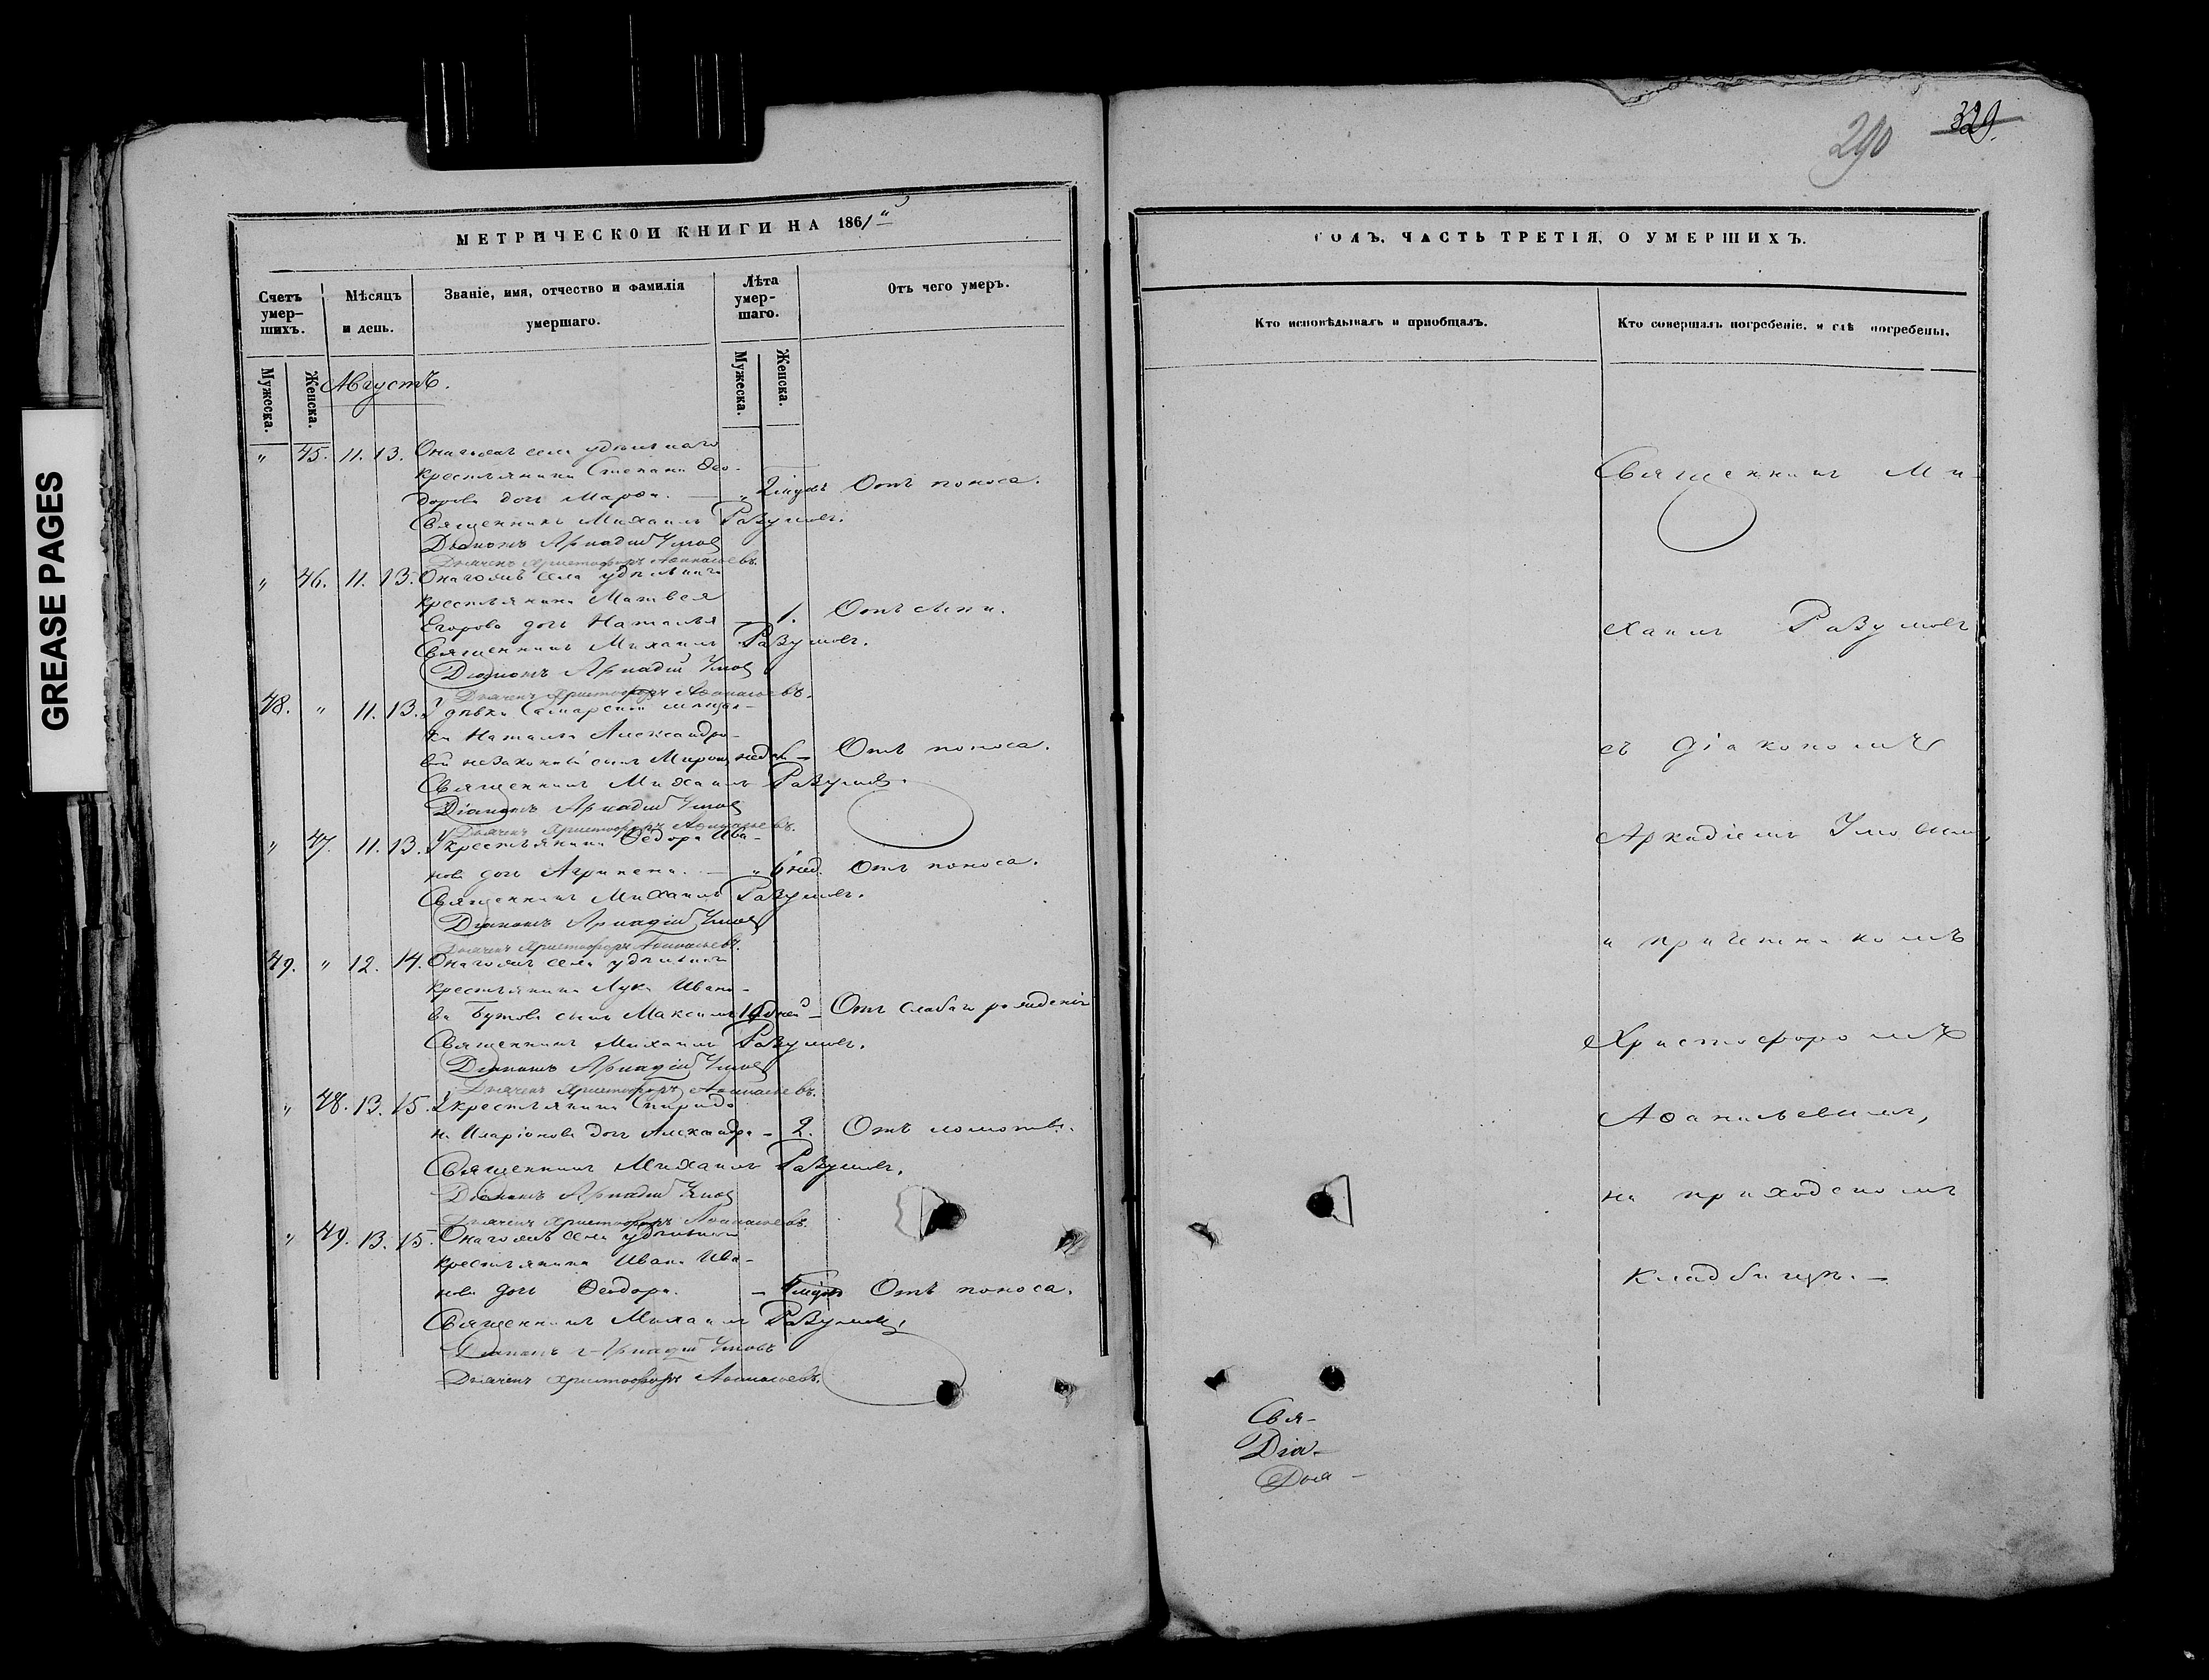 GREASE PAGES
290
329.
МЕТРИЧЕСКОЙ КНИГИ НА 1861й
Счетъ умер-шихъ.
Мѣсяцъ и день.
Званіе, имя, отчество и фамилія умершаго.
Лѣта умер-шаго.
Отъ чего умеръ.
Мужеска.
Женска.
Мужеска.
Женска.
Августъ.
" 45. 11. 13. села удѣльнаго
крестьянина Степана Ѳео-
дорова дочь Марѳа. — " 2 Отъ поноса.
Священникъ Михаилъ Разумовъ.
Діаконъ Аркадій Умовъ
Дьячекъ Христофоръ Аѳанасьевъ.
" 46. 11. 13. села удѣльнаго
крестьянина Матвея
Егорова дочь Наталья — 1. Отъ
Священникъ Михаилъ Разумовъ.
Діаконъ Аркадій Умовъ
Дьячекъ Христофоръ Аѳанасьевъ.
48. " 11. 13. У дѣвки Самарской мѣщан-
ки Натальи Александро-
вой незаконный сынъ Миронъ — Отъ поноса.
Священникъ Михаилъ Разумовъ.
Діаконъ Аркадій Умовъ
Дьячекъ Христофоръ Аѳанасьевъ.
" 47. 11. 13. У крестьянина Ѳедора Ива-
нова дочь Агрипена. — " 6 нед. Отъ поноса.
Священникъ Михаилъ Разумовъ.
Діаконъ Аркадій Умовъ
Дьячекъ Христофоръ Аѳанасьевъ.
49. " 12. 14. села удѣльнаго
крестьянина Луки Ивано-
ва Бутова сынъ Максимъ дней — Отъ слабаго рожденія
Священникъ Михаилъ Разумовъ.
Діаконъ Аркадій Умовъ
Дьячекъ Христофоръ Аѳанасьевъ.
" 48. 13. 15. У крестьянина Спиридо
на Иларіонова дочь Александра — 2. Отъ ломоты.
Священникъ Михаилъ Разумовъ.
Діаконъ Аркадій Умовъ
Дьячекъ Христофоръ Аѳанасьевъ.
" 49. 13. 15. села удѣльнаго
крестьянина Ивана Ива-
нова дочь Ѳеодора. — Отъ поноса.
Священникъ Михаилъ Разумовъ
Діаконъ Аркадій Умовъ
Дьячекъ Христофоръ Аѳанасьевъ.
ГОДЪ, ЧАСТЬ ТРЕТІЯ, О УМЕРШИХЪ.
Кто исповѣдывалъ и пріобщалъ.
Кто совершалъ погребеніе, и гдѣ погребены.
Священникъ Ми-
хаилъ Разумовъ
съ діакономъ
Аркадіемъ Умовымъ
и причетникомъ
Христофоромъ
Аѳанасьевымъ,
на приходскомъ
кладбищѣ. —
Свя-
Діа-
Дья-